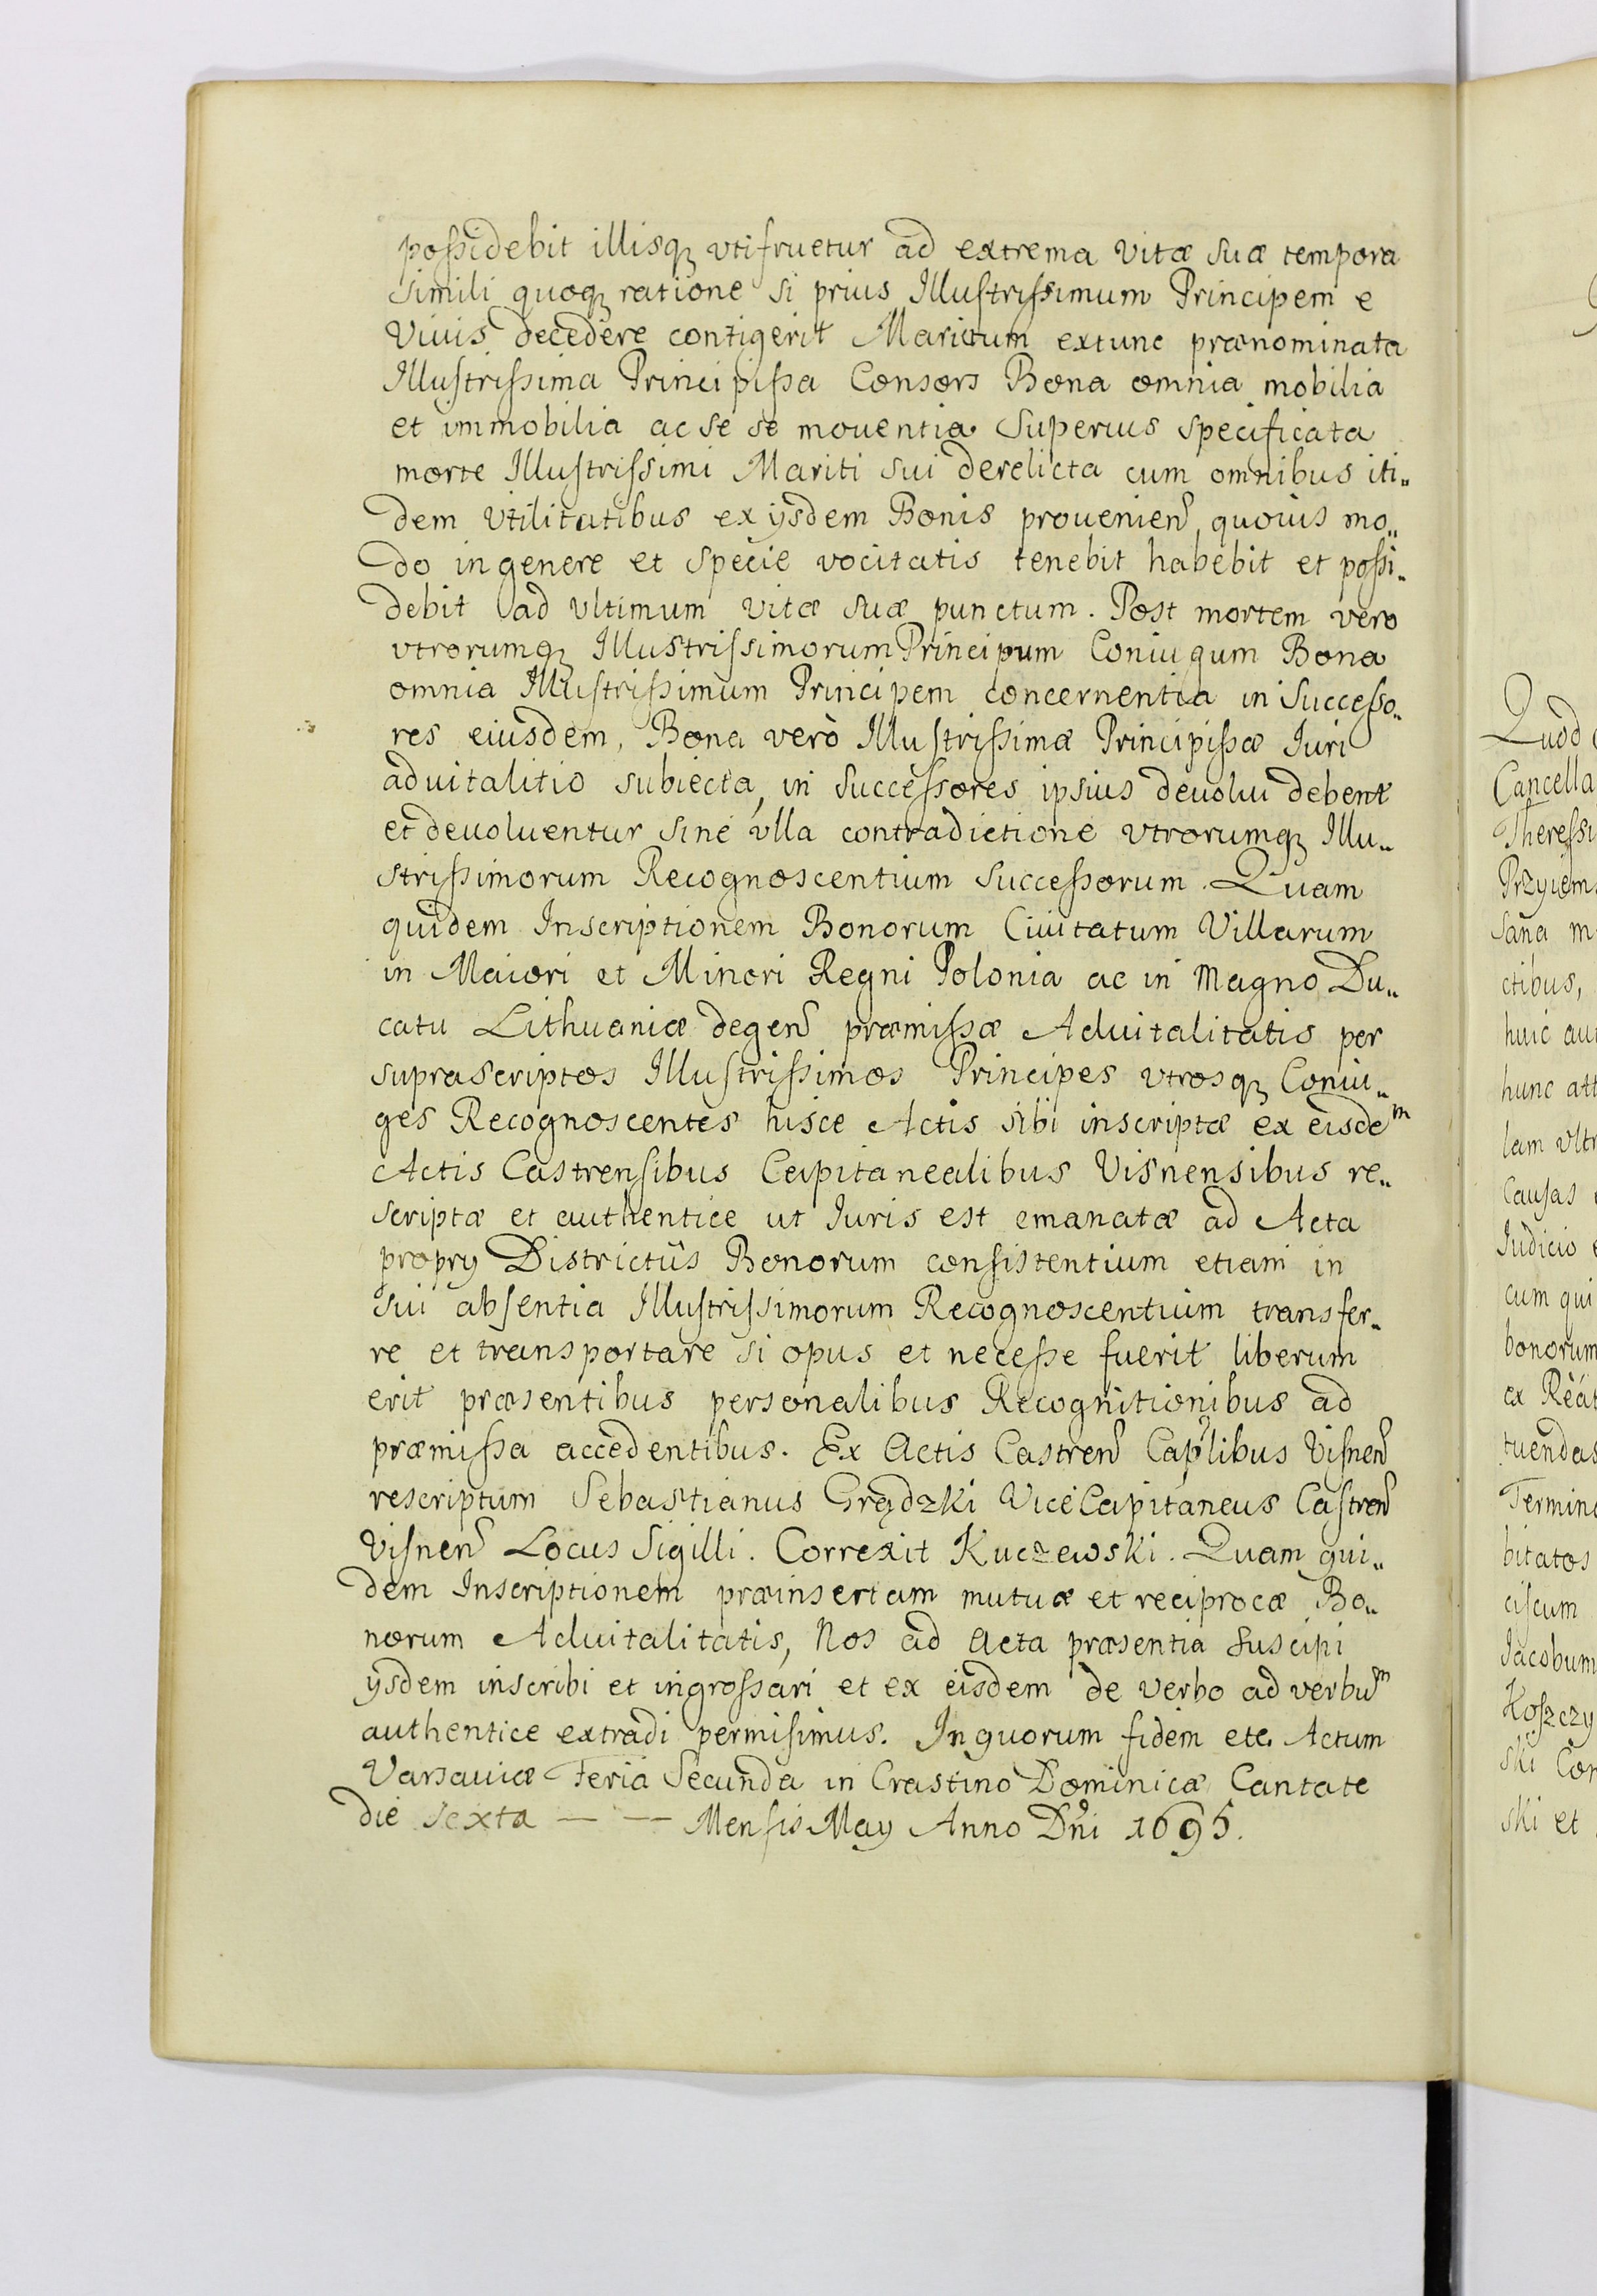 possidebit illisq₃ vtifruetur ad extrema vitæ suæ tempora
simili quoq₃ ratione si prius Illustrissimum Principem e
Viuis decedere contigerit Maritum extunc prænominata
Illustrissima Principissa Consors Bona omnia mobilia
et immobilia ac se se mouentia superius specificata
morte Illustrissimi Mariti sui derelicta cum omnibus iti„
dem vtilitatibus ex ijsdem Bonis prouenien̄ quouis mo„
do in genere et specie vocitatis tenebit habebit et possi„
debit ad vltimum vitæ suæ punctum. Post mortem vero
vtrorumq₃ Illustrissimorum Principum Coniugum Bona
omnia Illustrissimum Principem concernentia in Successo„
res eiusdem, Bona verò Illustrissimæ Principissæ Iuri
aduitalitio subiecta, in Successores ipsius deuolui debent
et deuoluentur sine vlla contradictione vtrorumq₃ Illu„
strissimorum Recognoscentium successorum. Quam
quidem Inscriptionem Bonorum Ciuitatum Villarum
in Maiori et Minori Regni Polonia ac in Magno Du„
catu Lithuaniæ degen̄ præmissæ Aduitalitatis per
suprascriptos Illustrissimos Principes vtrosq₃ Coniu„
ges Recognoscentes hisce Actis sibi inscriptæ ex eisdeᵐ
Actis Castrensibus Capitanealibus Visnensibus re„
scriptæ et authentice ut Iuris est emanatæ ad Acta
proprij Districtûs Bonorum consistentium etiam in
sui absentia Illustrissimorum Recognoscentium transfer„
re et transportare si opus et necesse fuerit liberum
erit præsentibus personalibus Recognitionibus ad
præmissa accedentibus. Ex Actis Castren̄ Cap̃libus Visnen̄
rescriptum Sebastianus Grądzki ViceCapitaneus Castren̄
Visnen̄ Locus Sigilli. Correxit Kuczewski. Quam qui„
dem Inscriptionem præinsertam mutuæ et reciprocæ Bo„
norum Aduitalitatis, Nos ad Acta præsentia suscipi
ijsdem inscribi et ingrossari et ex eisdem de verbo ad verbuᵐ
authentice extradi permisimus. In quorum fidem etc. Actum
Varsauiæ Feria Secunda in Crastino Dominicæ Cantate
die sexta — — Mensis Maij Anno Dn̄i 1695.
Quod
Cancella
Theressi
Przyiem
Sana m
ctibus,
huic au
hunc att
lam vltr
Causas
Iudicio
cum qui
bonorum
ex Reat
tuendas
Termino
bitatos
ciscum
Jacobum
Koszczy
ski Con
ski et